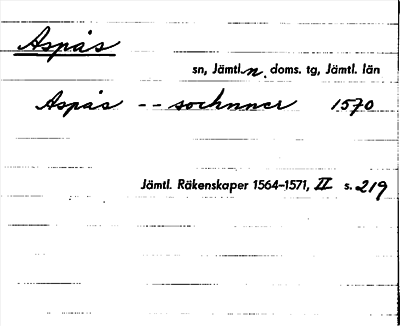 Aspås
sn, Jämtl. n. doms. tg, Jämtl. län
Aspås -- sochnner 1570
Jämtl. Räkenskaper 1564-1571, II s. 219